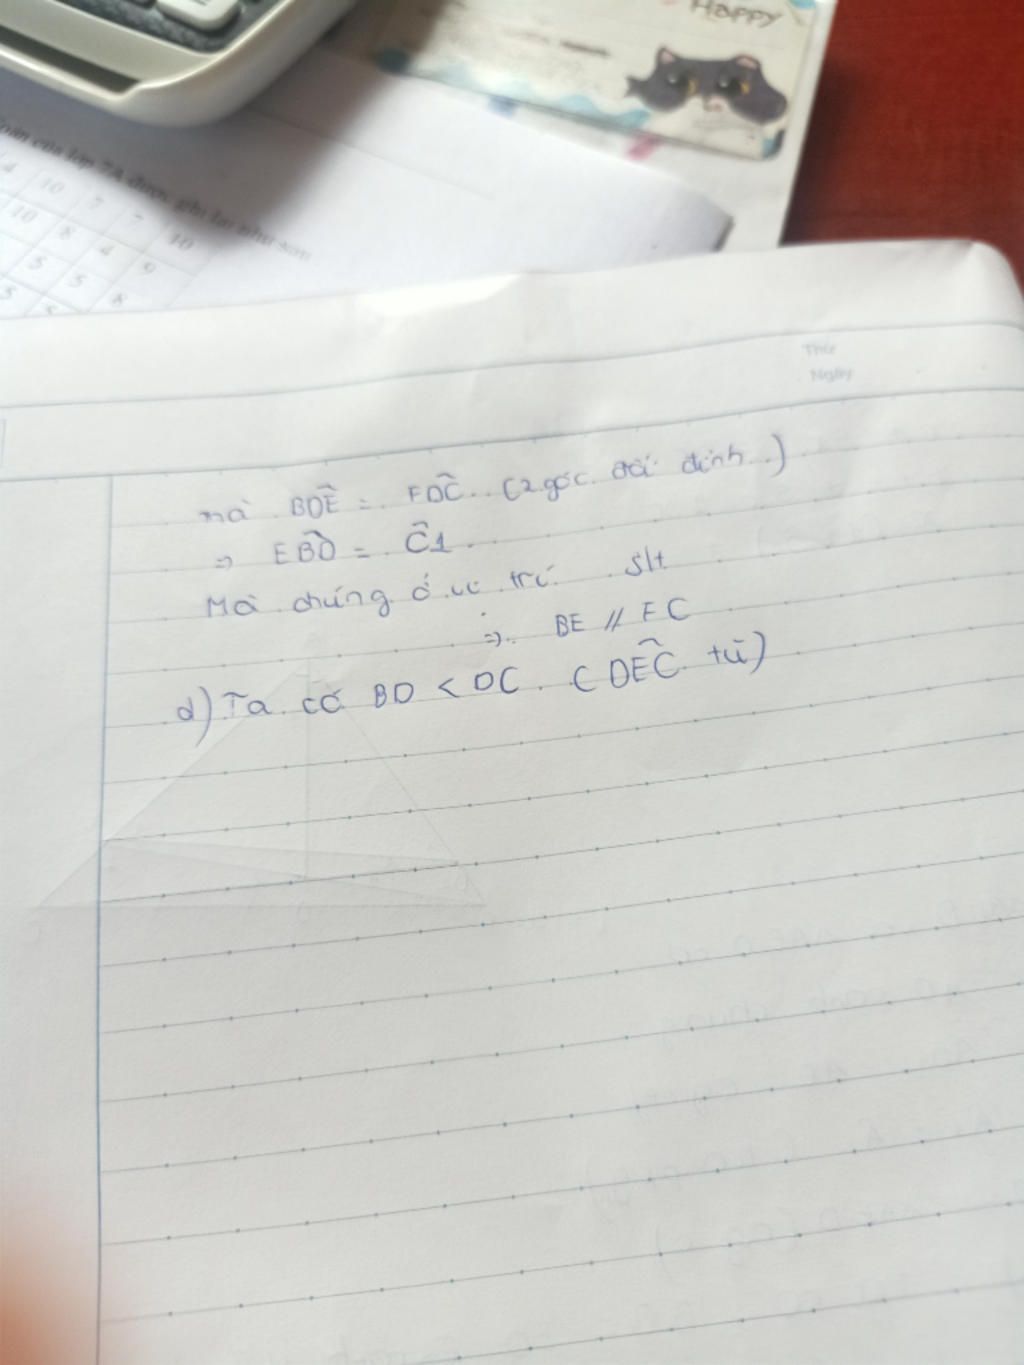 Happy
Toán của lớp 7A được ghi lại như sau
4 10 7 7 10
10 8 4 9
5 5 8
5
Thứ
Ngày
mà BDÊ = FDĈ (2 góc đối đỉnh)
⇒ EB̂D = Ĉ1
Mà chúng ở vị trí slt
⇒ BE // FC
d) Ta có BD < DC (DÊC tù)